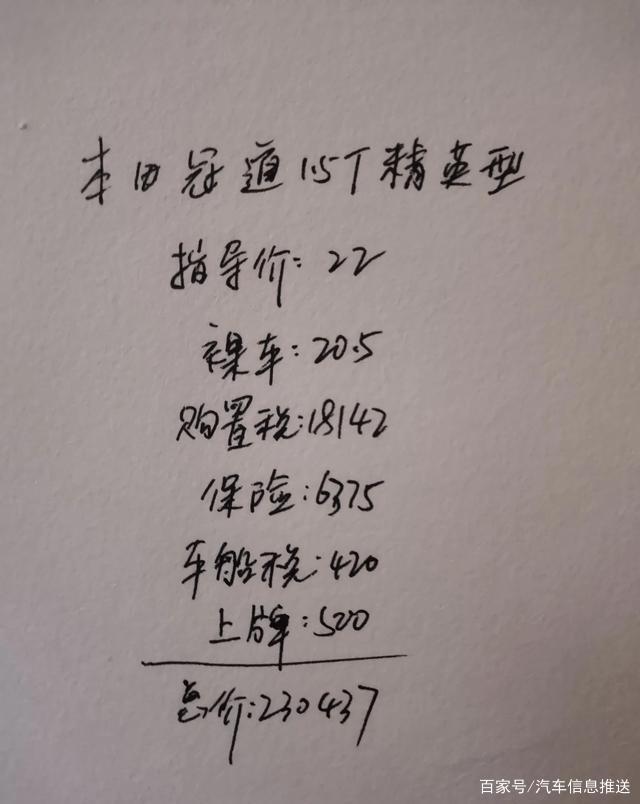 本田冠道1.5T精英型
指导价:22
裸车:20.5
购置税:18142
保险:6375
车船税:420
上牌:500
总价:230437
百家号/汽车信息推送